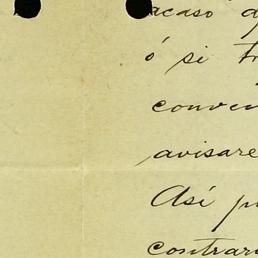 acaso
ó si
conven
avisare
Así
contrar